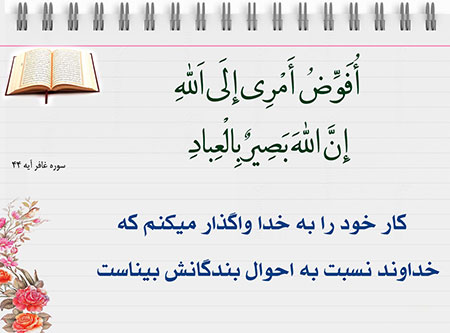 أُفَوِّضُ أَمْرِی إِلَی اَللهِ
إِنَّ اللهَ بَصِیرٌ بِالْعِبادِ
سوره غافر آیه ۴۴
کار خود را به خدا واگذار میکنم که
خداوند نسبت به احوال بندگانش بیناست